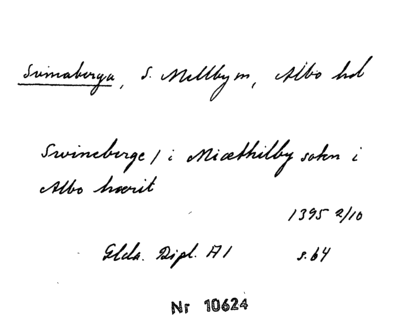 Svinaberga, S. Mellbyn, Albo hd
Swineberge / i Miæthilby sokn i
Albo hærit
1395 2/10
GLda. Dipl. A1 s. 64
Nr 10624